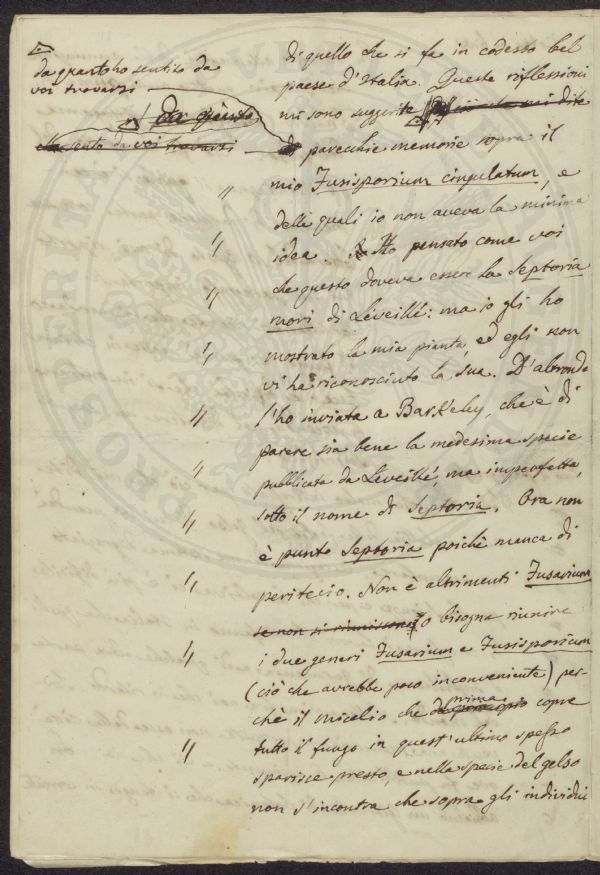 da quanto ho sentito da
voi trovarsi
da quanto
sento da voi trovarsi
di quello che si fa in codesto bel
paese d'Italia. Queste riflessioni
mi sono suggerite
di parecchie memorie sopra il
mio Fusisporium cingulatum, e
delle quali io non aveva la minima
idea. Ho pensato come voi
che questo doveva essere la Septoria
mori di Léveillé: ma io gli ho
mostrato la mia pianta, ed egli non
vi ha riconosciuto la sua. D'altronde
l'ho inviata a Barkeley, che è di
parere sia bene la medesima specie
pubblicata da Léveillé, ma imperfetta,
sotto il nome di Septoria. Ora non
è punto Septoria poichè manca di
peritecio. Non è altrimenti Fusarium
se non si riunissero o bisogna riunire
i due generi Fusarium e Fusisporium
(ciò che avrebbe poco inconveniente) per-
chè il micelio che prima copre
tutto il fungo in quest'ultimo spesso
sparisce presto, e nella specie del gelso
non s'incontra che sopra gli individui